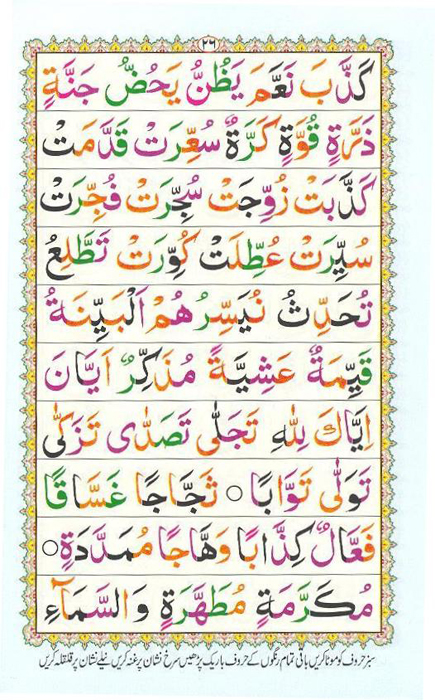 ٢٦
كَذَّبَ نَعَّمَ يَظُنُّ يَحُضُّ جَنَّةٍ
ذَرَّةٍ قُوَّةٍ كَرَّةٌ سُعِّرَتْ قَدَّمَتْ
كَذَّبَتْ زُوِّجَتْ سُجِّرَتْ فُجِّرَتْ
سُيِّرَتْ عُطِّلَتْ كُوِّرَتْ تَطَّلِعُ
تُحَدِّثُ نُيَسِّرُ هُمْ اَلْبَيِّنَةُ
قَيِّمَةٌ عَشِيَّةً مُذَكِّرٌ اَيَّانَ
اِيَّاكَ لِلّٰهِ تَجَلّٰى تَصَدّٰى تَزَكّٰى
تَوَلّٰى تَوَّابًا ○ ثَجَّاجًا غَسَّاقًا
فَعَّالٌ كِذَّابًا وَهَّاجًا مُمَدَّدَةٍ ○
مُكَرَّمَةٍ مُطَهَّرَةٍ وَالسَّمَآءِ
سبز حروف کو موٹا کریں باقی تمام رنگوں کے حروف باریک پڑھیں سرخ نشان پر غنہ کریں نیلے نشان پر قلقلہ کریں